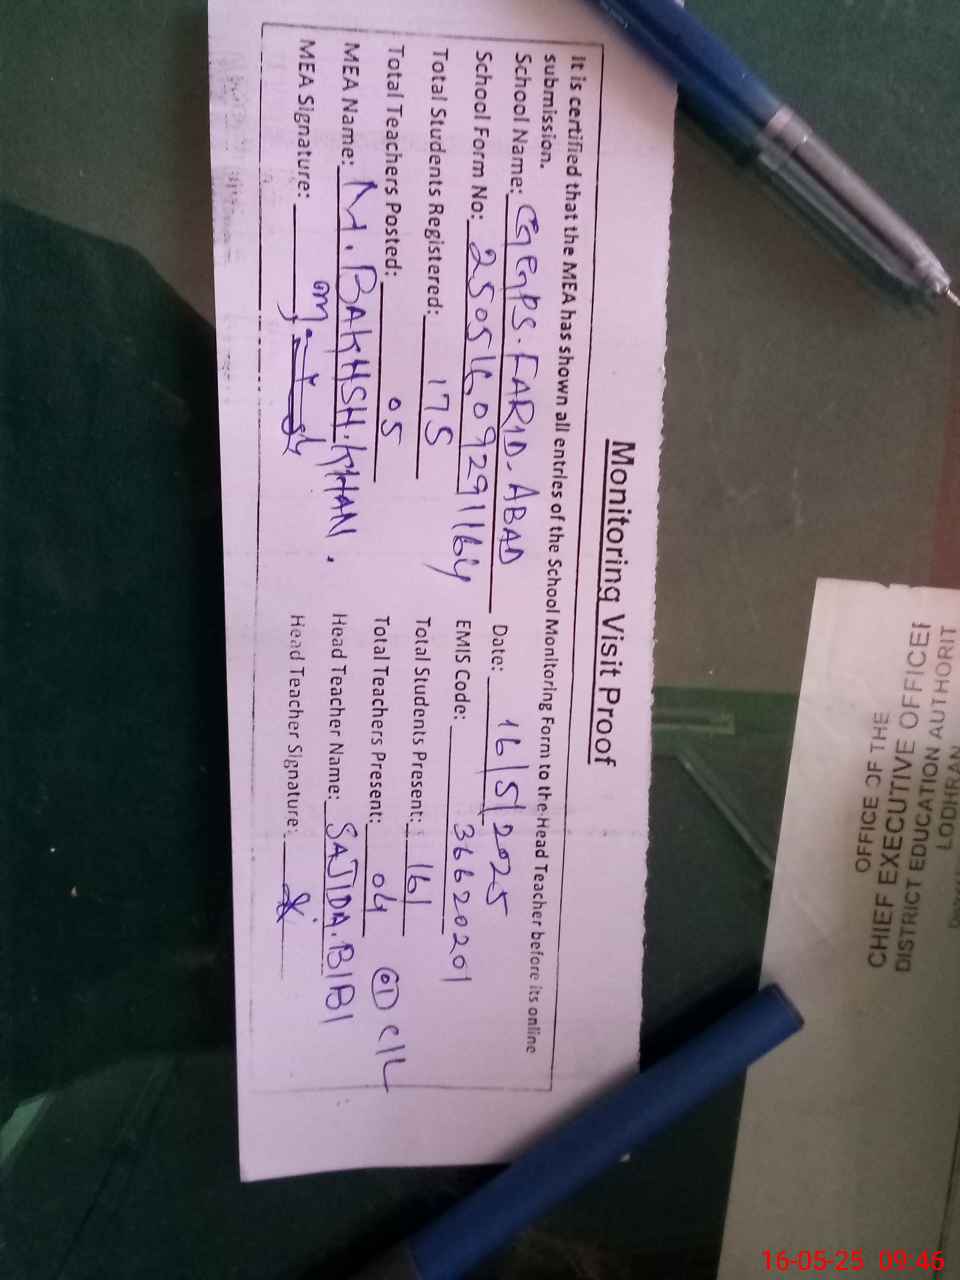 Monitoring Visit Proof
It is certified that the MEA has shown all entries of the School Monitoring Form to the Head Teacher before its online
submission.
School Name: GGPS. FARID. ABAD Date: 16/5/2025
School Form No: 25051609291164 EMIS Code: 36620201
Total Students Registered: 175 Total Students Present: 161
Total Teachers Posted: 05 Total Teachers Present: 04 01 C/L
MEA Name: M. BAKHSH. KHAN. Head Teacher Name: SAJIDA. BIBI
MEA Signature: Head Teacher Signature:
OFFICE OF THE
CHIEF EXECUTIVE OFFICER
DISTRICT EDUCATION AUTHORIT
LODHRAN
16-05-25 09:46